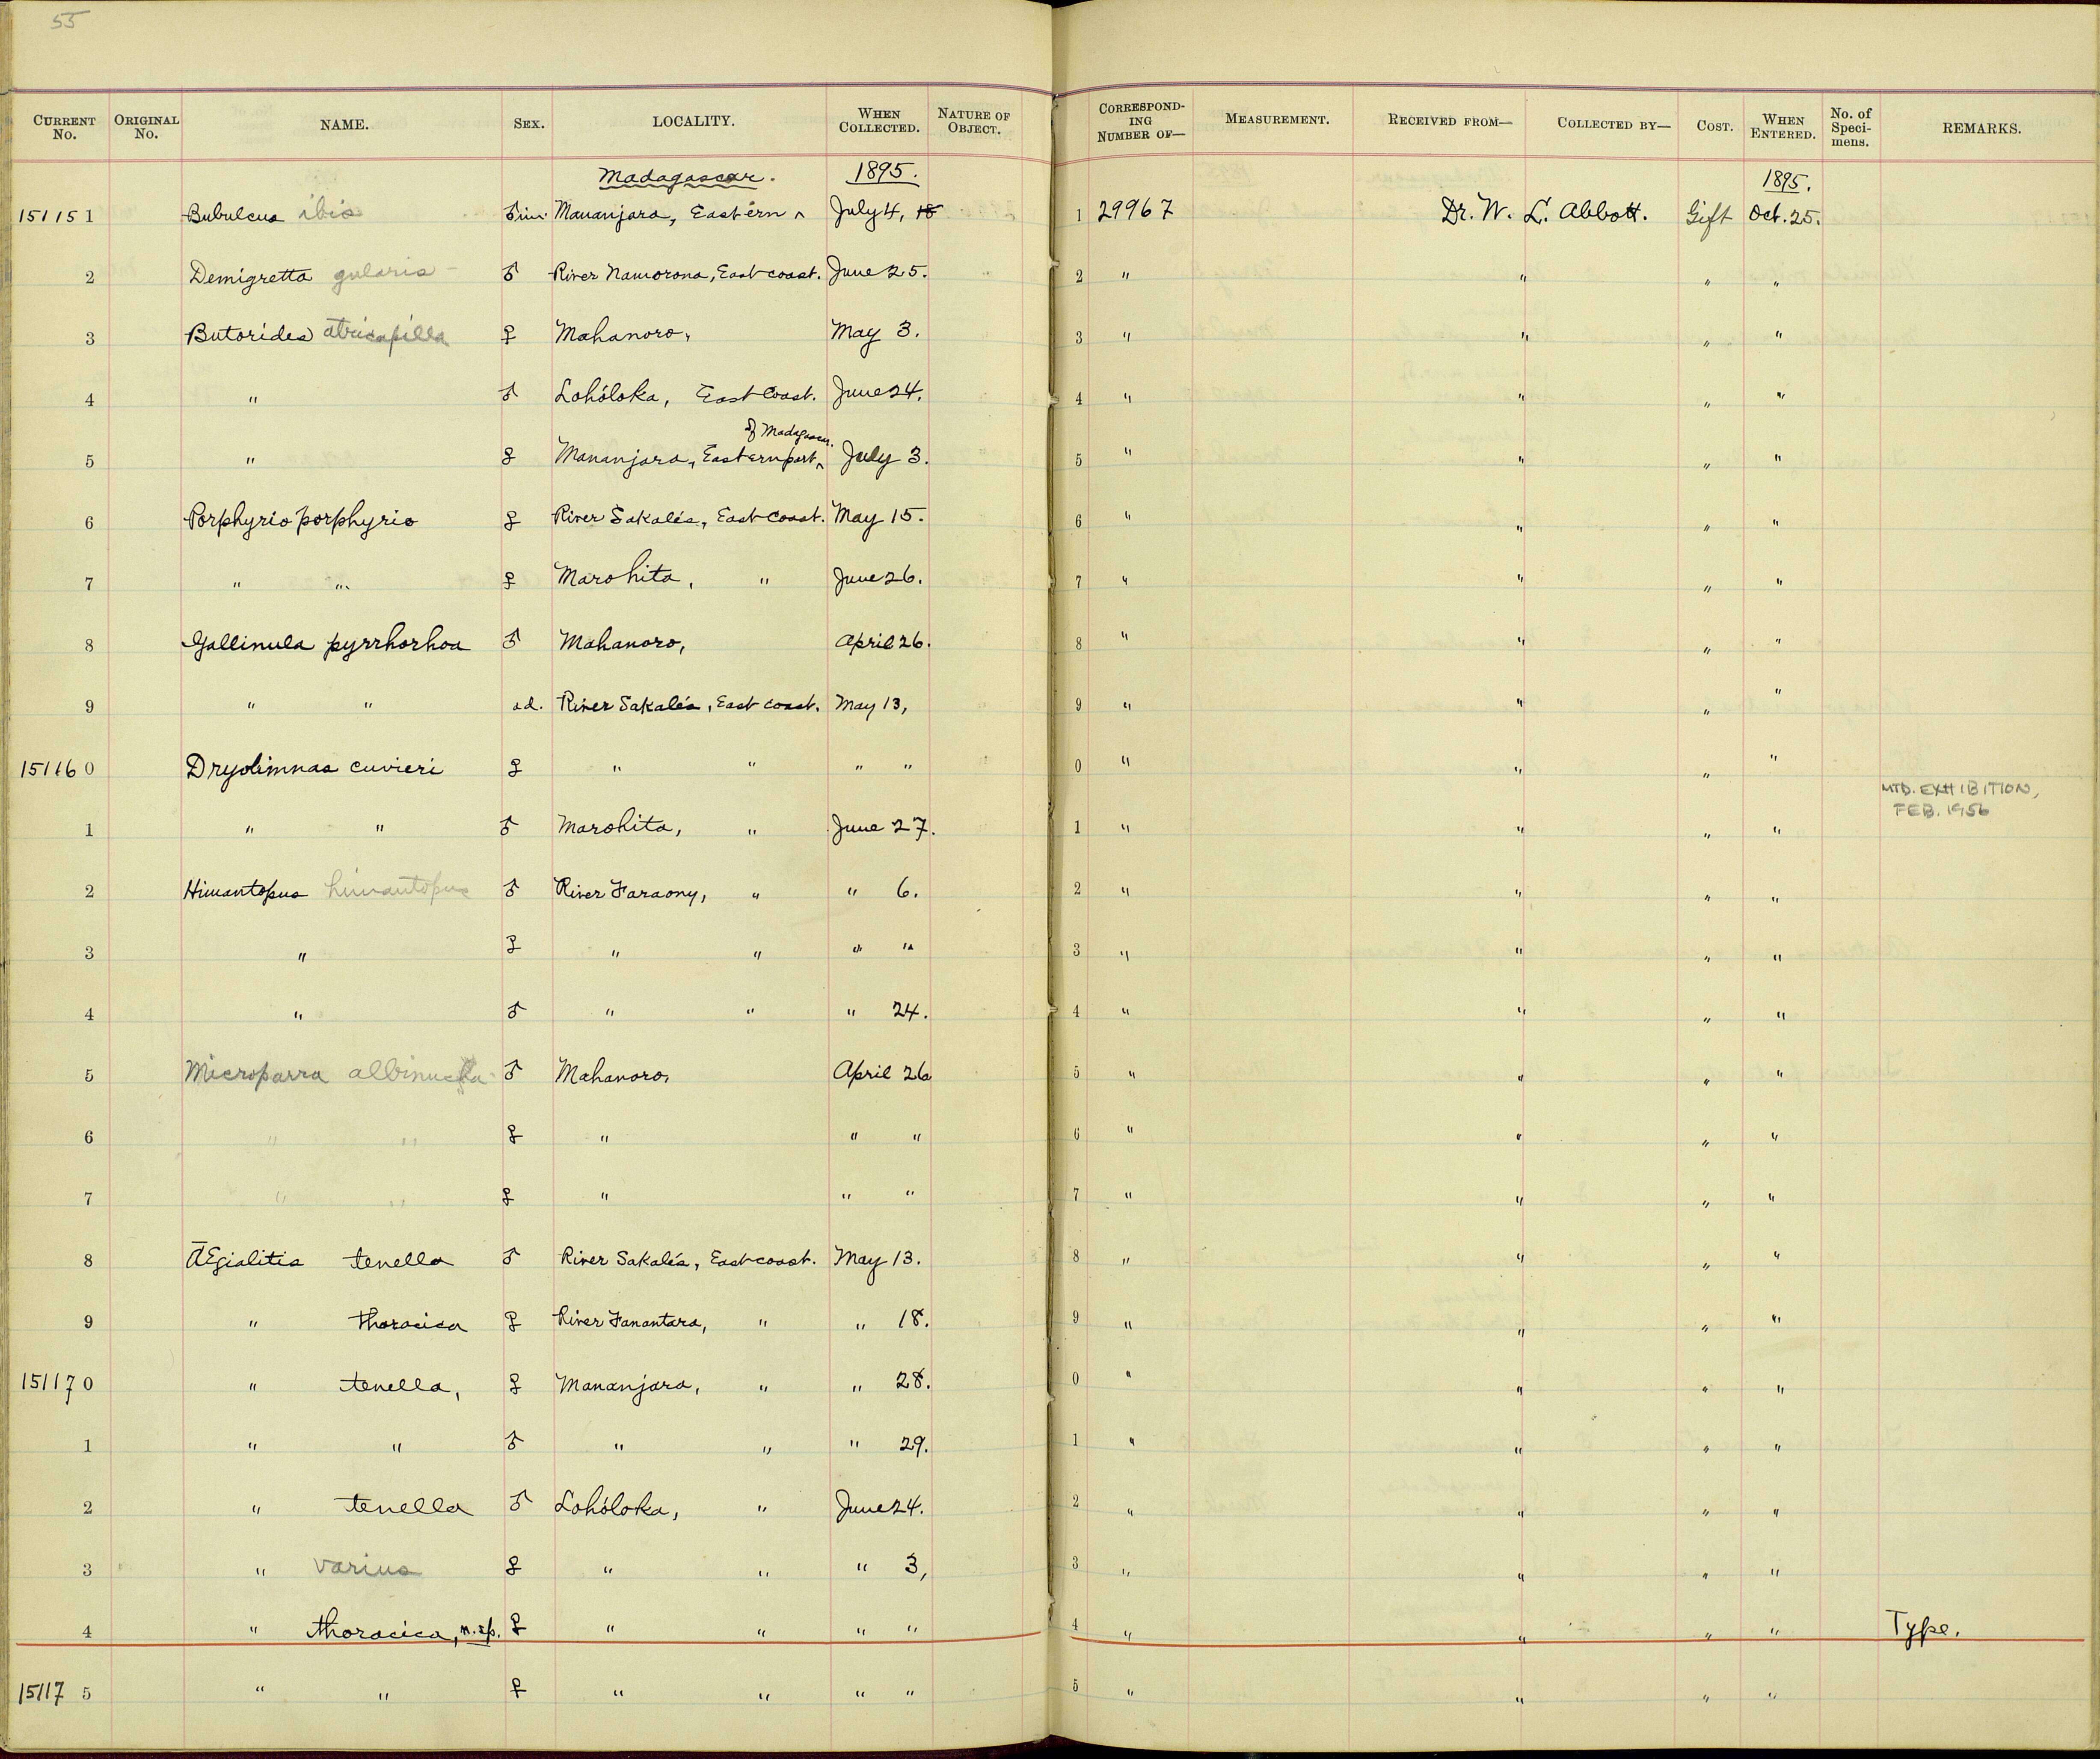 55
CURRENT No. ORIGINAL No. NAME. SEX. LOCALITY. WHEN COLLECTED. NATURE OF OBJECT. CORRESPONDING NUMBER OF— MEASUREMENT. RECEIVED FROM— COLLECTED BY— COST. WHEN ENTERED. No. of Specimens. REMARKS.
Madagascar. 1895. 1895.
151151 Bubulcus ibis ♂ im. Mananjara, Eastern ^ July 4, 18 1 29967 Dr. W. L. Abbott. Gift Oct. 25.
2 Demigretta gularis - ♂ River Namorona, East coast. June 25. 2 " " " "
3 Butorides atricapilla ♀ Mahanoro, May 3. 3 " " " "
4 " ♂ Lohóloka, East Coast. June 24. 4 " " " "
of Madagascar.
5 " ♀ Mananjara, Eastern part ^ July 3. 5 " " " "
6 Porphyrio porphyrio ♀ River Sakaleà, East coast. May 15. 6 " " " "
7 " " ♀ Marohita, " June 26. 7 " " " "
8 Gallinula pyrrhorhoa ♂ Mahanoro, April 26. 8 " " " "
9 " " ad. River Sakaleà, East coast. May 13, 9 " " " "
151160 Dryolimnas cuvieri ♀ " " " " 0 " " " "
MTD. EXHIBITION,
FEB. 1956
1 " " ♂ Marohita, " June 27. 1 " " " "
2 Himantopus himantopus ♂ River Faraony, " " 6. 2 " " " "
3 " ♀ " " " " 3 " " " "
4 " ♂ " " " 24. 4 " " " "
5 Microparra albinucha ♂ Mahanoro, April 26 5 " " " "
6 " " ♀ " " " 6 " " " "
7 " " ♀ " " " 7 " " " "
8 Ægialitis tenella ♂ River Sakaleà, East coast. May 13. 8 " " " "
9 " thoracica ♀ River Fanantara, " " 18. 9 " " " "
151170 " tenella, ♀ Mananjara, " " 28. 0 " " " "
1 " " ♂ " " " 29. 1 " " " "
2 " tenella ♂ Lohóloka, " June 24. 2 " " " "
3 " varius ♀ " " " 3, 3 " " " "
4 " thoracica, n. sp. ♀ " " " " 4 " " " " Type.
151175 " " ♀ " " " " 5 " " " "